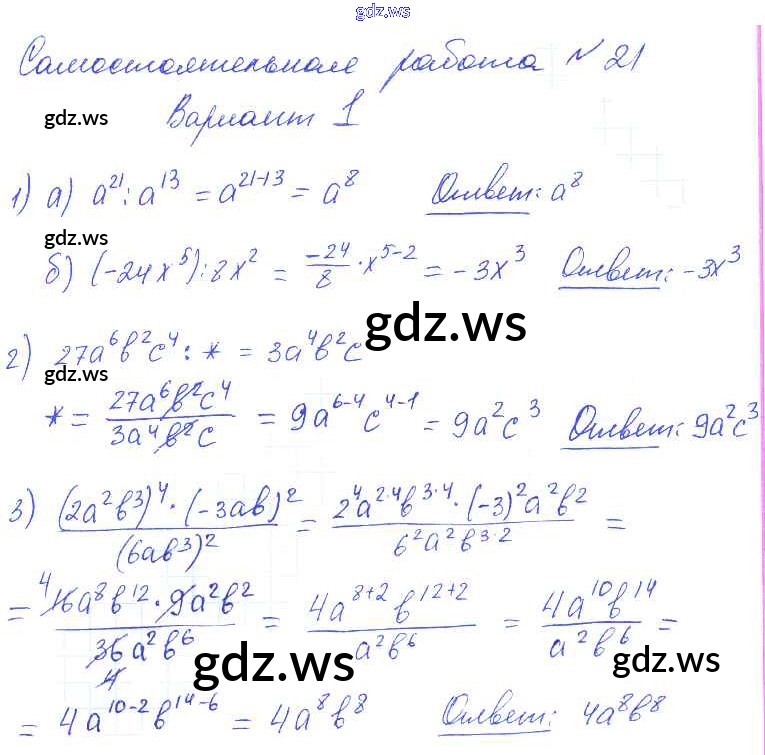 gdz.ws
Самостоятельная работа № 21
gdz.ws Вариант 1
1) а) a²¹ : a¹³ = a²¹⁻¹³ = a⁸ Ответ: a⁸
gdz.ws
б) (-24x⁵) : 8x² = -24/8 · x⁵⁻² = -3x³ Ответ: -3x³
gdz.ws
2) 27a⁶b²c⁴ : * = 3a⁴b²c
gdz.ws
* = 27a⁶b²c⁴/3a⁴b²c = 9a⁶⁻⁴c⁴⁻¹ = 9a²c³ Ответ: 9a²c³
3) (2a²b³)⁴ · (-3ab)²/(6ab³)² = 2⁴a²·⁴b³·⁴ · (-3)²a²b²/6²a²b³·² =
= ⁴16a⁸b¹² · 9a²b²/36a²b⁶ = 4a⁸⁺²b¹²⁺²/a²b⁶ = 4a¹⁰b¹⁴/a²b⁶ =
4
gdz.ws gdz.ws
= 4a¹⁰⁻²b¹⁴⁻⁶ = 4a⁸b⁸ Ответ: 4a⁸b⁸